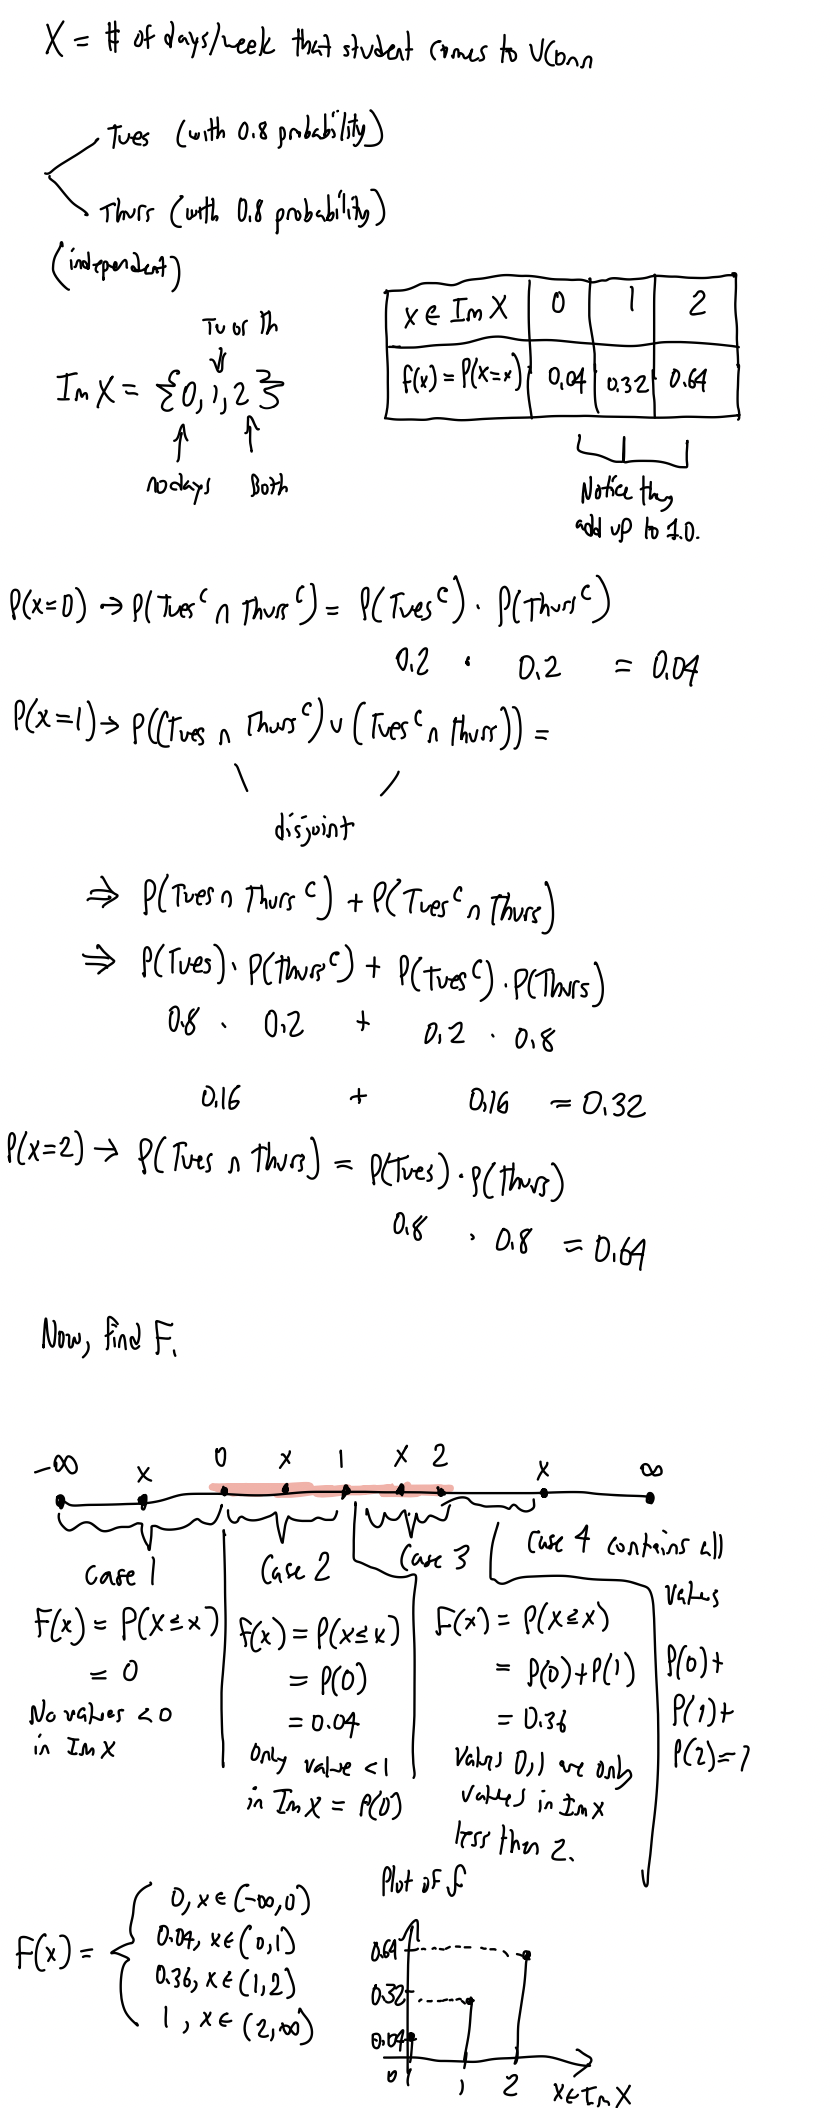 X = # of days/week that student comes to UConn
Tues (with 0.8 probability)
Thurs (with 0.8 probability)
(independent)
Tu or Th
Im X = {0, 1, 2}
no days Both
x ∈ Im X 0 1 2
f(x) = P(X=x) 0.04 0.32 0.64
Notice they
add up to 1.0.
P(x=0) → P(Tues^c ∩ Thurs^c) = P(Tues^c) · P(Thurs^c)
0.2 · 0.2 = 0.04
P(x=1) → P((Tues ∩ Thurs^c) ∪ (Tues^c ∩ Thurs)) =
disjoint
⇒ P(Tues ∩ Thurs^c) + P(Tues^c ∩ Thurs)
⇒ P(Tues) · P(Thurs^c) + P(Tues^c) · P(Thurs)
0.8 · 0.2 + 0.2 · 0.8
0.16 + 0.16 = 0.32
P(x=2) → P(Tues ∩ Thurs) = P(Tues) · P(Thurs)
0.8 · 0.8 = 0.64
Now, find F.
-∞ x 0 x 1 x 2 x ∞
Case 1
F(x) = P(X≤x)
= 0
No values < 0
in Im X
Case 2
f(x) = P(X≤x)
= P(0)
= 0.04
Only value < 1
in Im X = P(0)
Case 3
F(x) = P(X≤x)
= P(0) + P(1)
= 0.36
Values 0, 1 are only
values in Im X
less than 2.
Case 4 contains all
values
P(0) +
P(1) +
P(2) = 1
F(x) = {
0, x ∈ (-∞, 0)
0.04, x ∈ (0, 1)
0.36, x ∈ (1, 2)
1, x ∈ (2, ∞)
Plot of f
0.64
0.32
0.04
0 1 2 X ∈ Im X